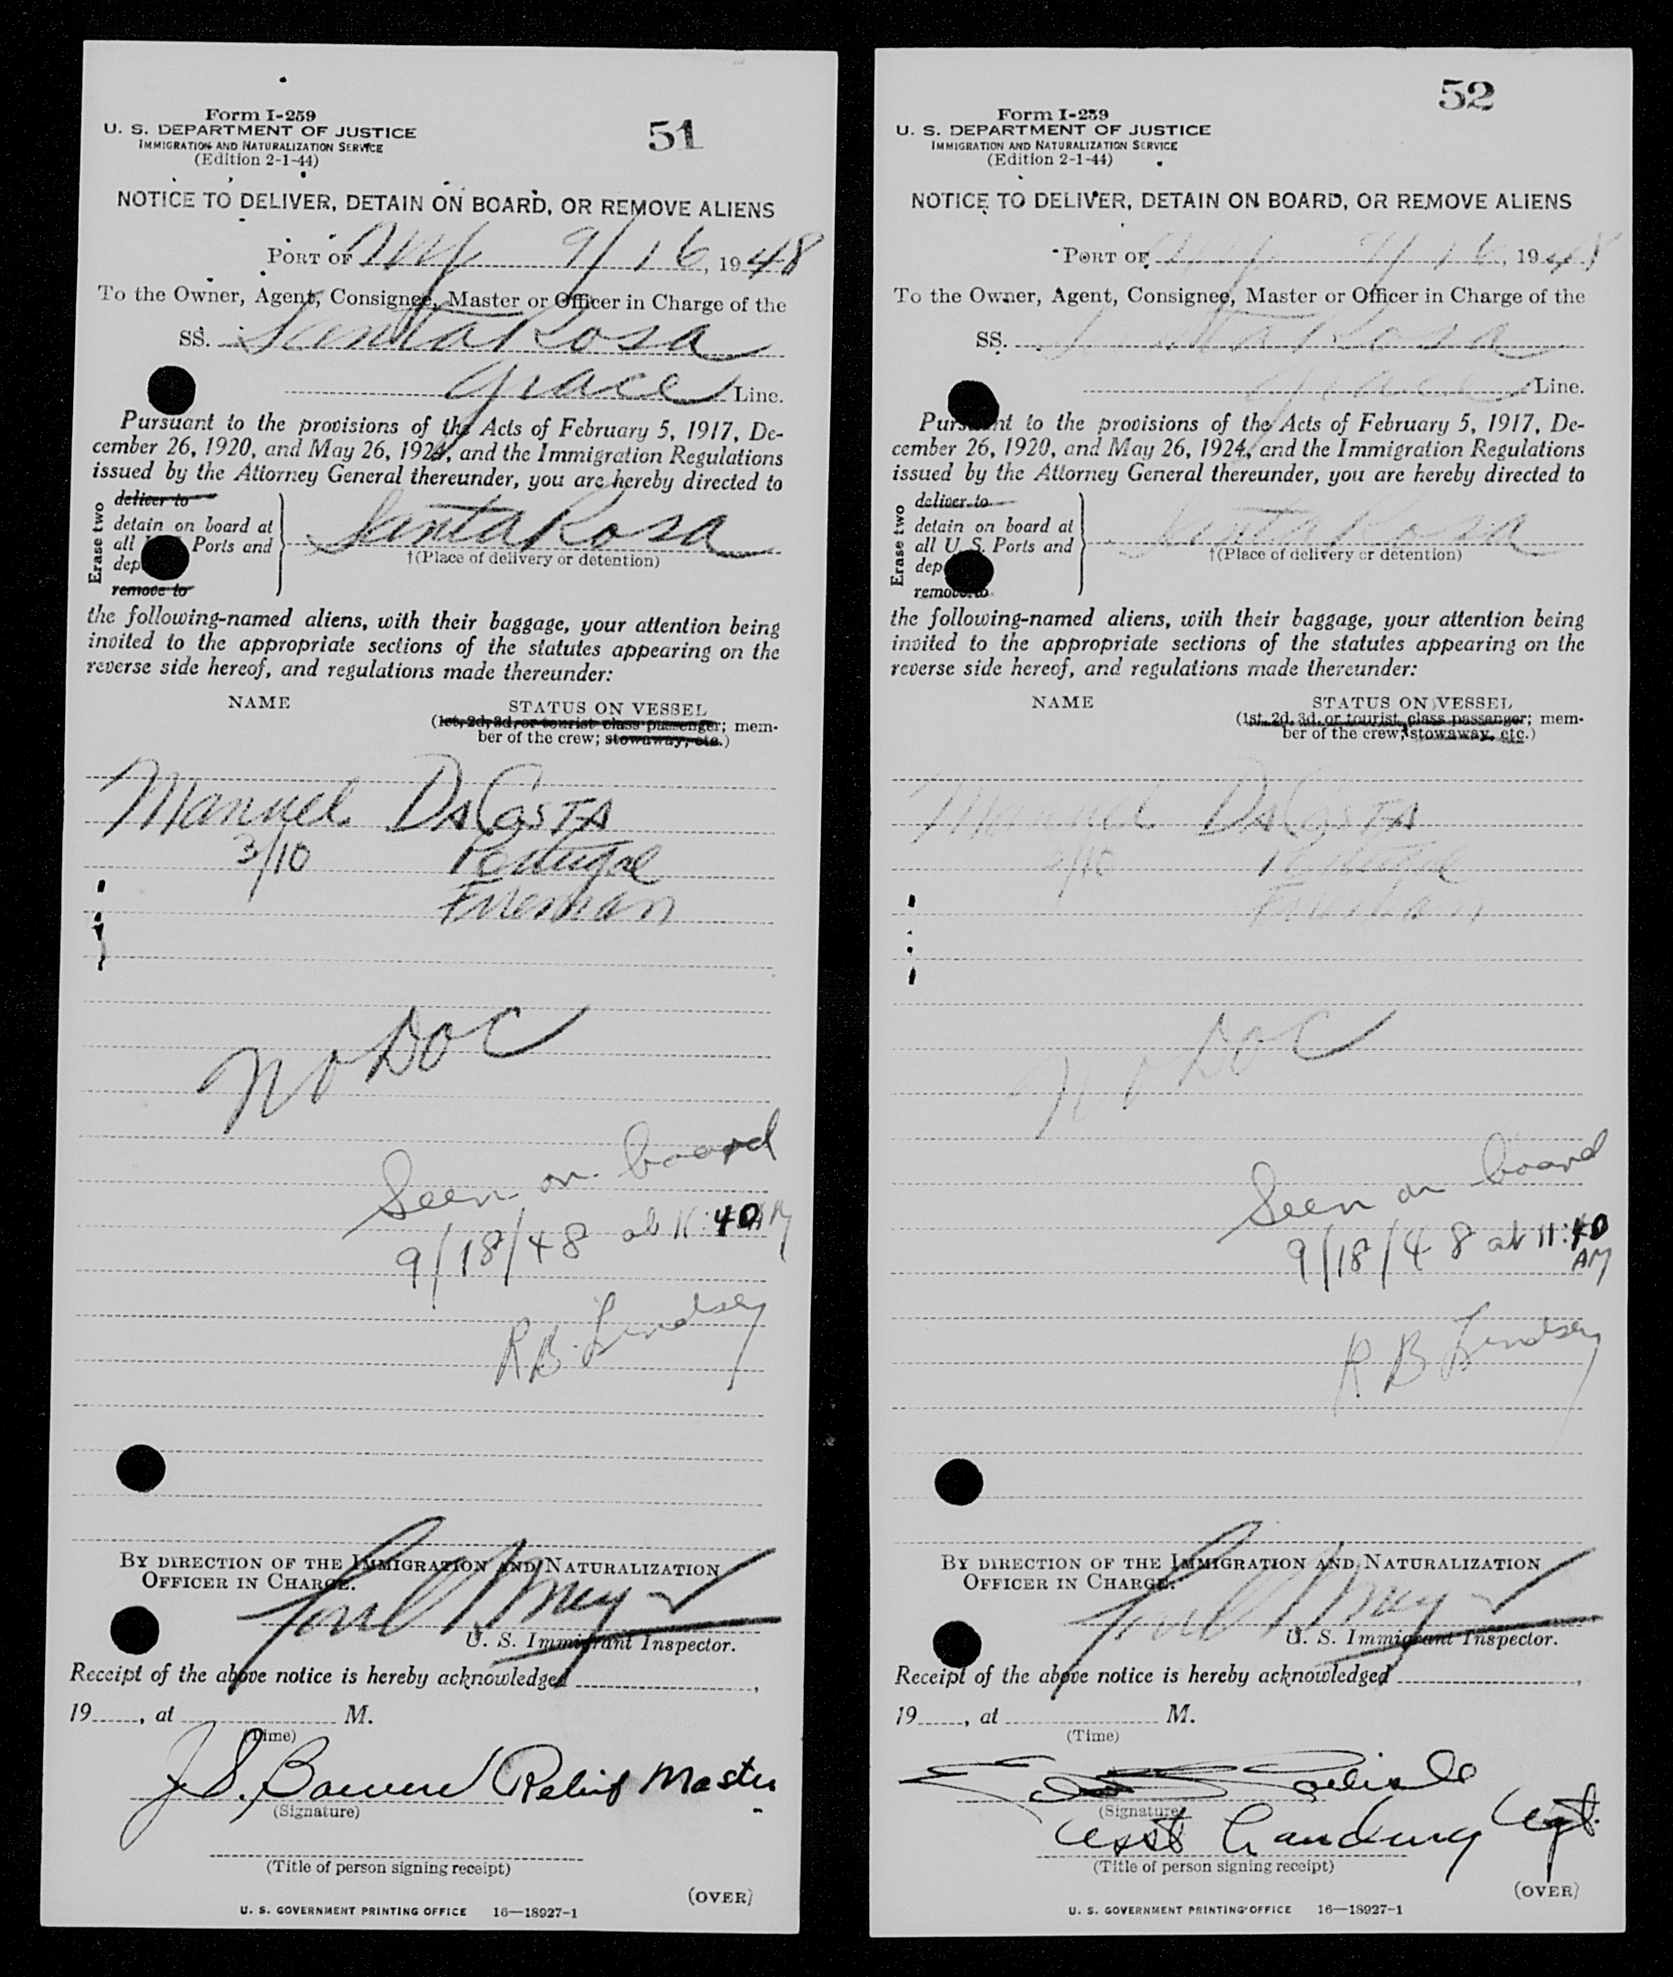 Form I-259
U. S. DEPARTMENT OF JUSTICE
IMMIGRATION AND NATURALIZATION SERVICE
(Edition 2-1-44)
51
NOTICE TO DELIVER, DETAIN ON BOARD, OR REMOVE ALIENS
PORT OF NY 9/16, 1948
To the Owner, Agent, Consignee, Master or Officer in Charge of the
SS. Santa Rosa
Grace Line.
Pursuant to the provisions of the Acts of February 5, 1917, De-
cember 26, 1920, and May 26, 1924, and the Immigration Regulations
issued by the Attorney General thereunder, you are hereby directed to
Erase two
deliver to
detain on board at
all Ports and
dep
remove to
Santa Rosa
†(Place of delivery or detention)
the following-named aliens, with their baggage, your attention being
invited to the appropriate sections of the statutes appearing on the
reverse side hereof, and regulations made thereunder:
NAME STATUS ON VESSEL
(1st, 2d, 3d, or tourist class passenger; mem-
ber of the crew; stowaway, etc.)
Manuel DaCosta
3/10 Portugal
Fireman
No Doc
Seen on board
9/18/48 at 11:40 AM
R B. Lindsey
BY DIRECTION OF THE IMMIGRATION AND NATURALIZATION
OFFICER IN CHARGE.
U. S. Immigrant Inspector.
Receipt of the above notice is hereby acknowledged ,
19 , at M.
(Time)
J. S. Relief Master
(Signature)
(Title of person signing receipt)
(OVER)
U. S. GOVERNMENT PRINTING OFFICE 16—18927-1
52
Form I-259
U. S. DEPARTMENT OF JUSTICE
IMMIGRATION AND NATURALIZATION SERVICE
(Edition 2-1-44)
NOTICE TO DELIVER, DETAIN ON BOARD, OR REMOVE ALIENS
PORT OF NY 9/16, 1948
To the Owner, Agent, Consignee, Master or Officer in Charge of the
SS. Santa Rosa
Grace Line.
Pursuant to the provisions of the Acts of February 5, 1917, De-
cember 26, 1920, and May 26, 1924, and the Immigration Regulations
issued by the Attorney General thereunder, you are hereby directed to
Erase two
deliver to
detain on board at
all U. S. Ports and
dep
remove to
Santa Rosa
†(Place of delivery or detention)
the following-named aliens, with their baggage, your attention being
invited to the appropriate sections of the statutes appearing on the
reverse side hereof, and regulations made thereunder:
NAME STATUS ON VESSEL
(1st, 2d, 3d, or tourist class passenger; mem-
ber of the crew; stowaway, etc.)
Manuel DaCosta
3/10 Portugal
Fireman
No Doc
Seen on board
9/18/48 at 11:40
AM
R B Lindsey
BY DIRECTION OF THE IMMIGRATION AND NATURALIZATION
OFFICER IN CHARGE.
U. S. Immigrant Inspector.
Receipt of the above notice is hereby acknowledged ,
19 , at M.
(Time)
(Signature)
Asst Landing Agt.
(Title of person signing receipt)
(OVER)
U. S. GOVERNMENT PRINTING OFFICE 16—18927-1